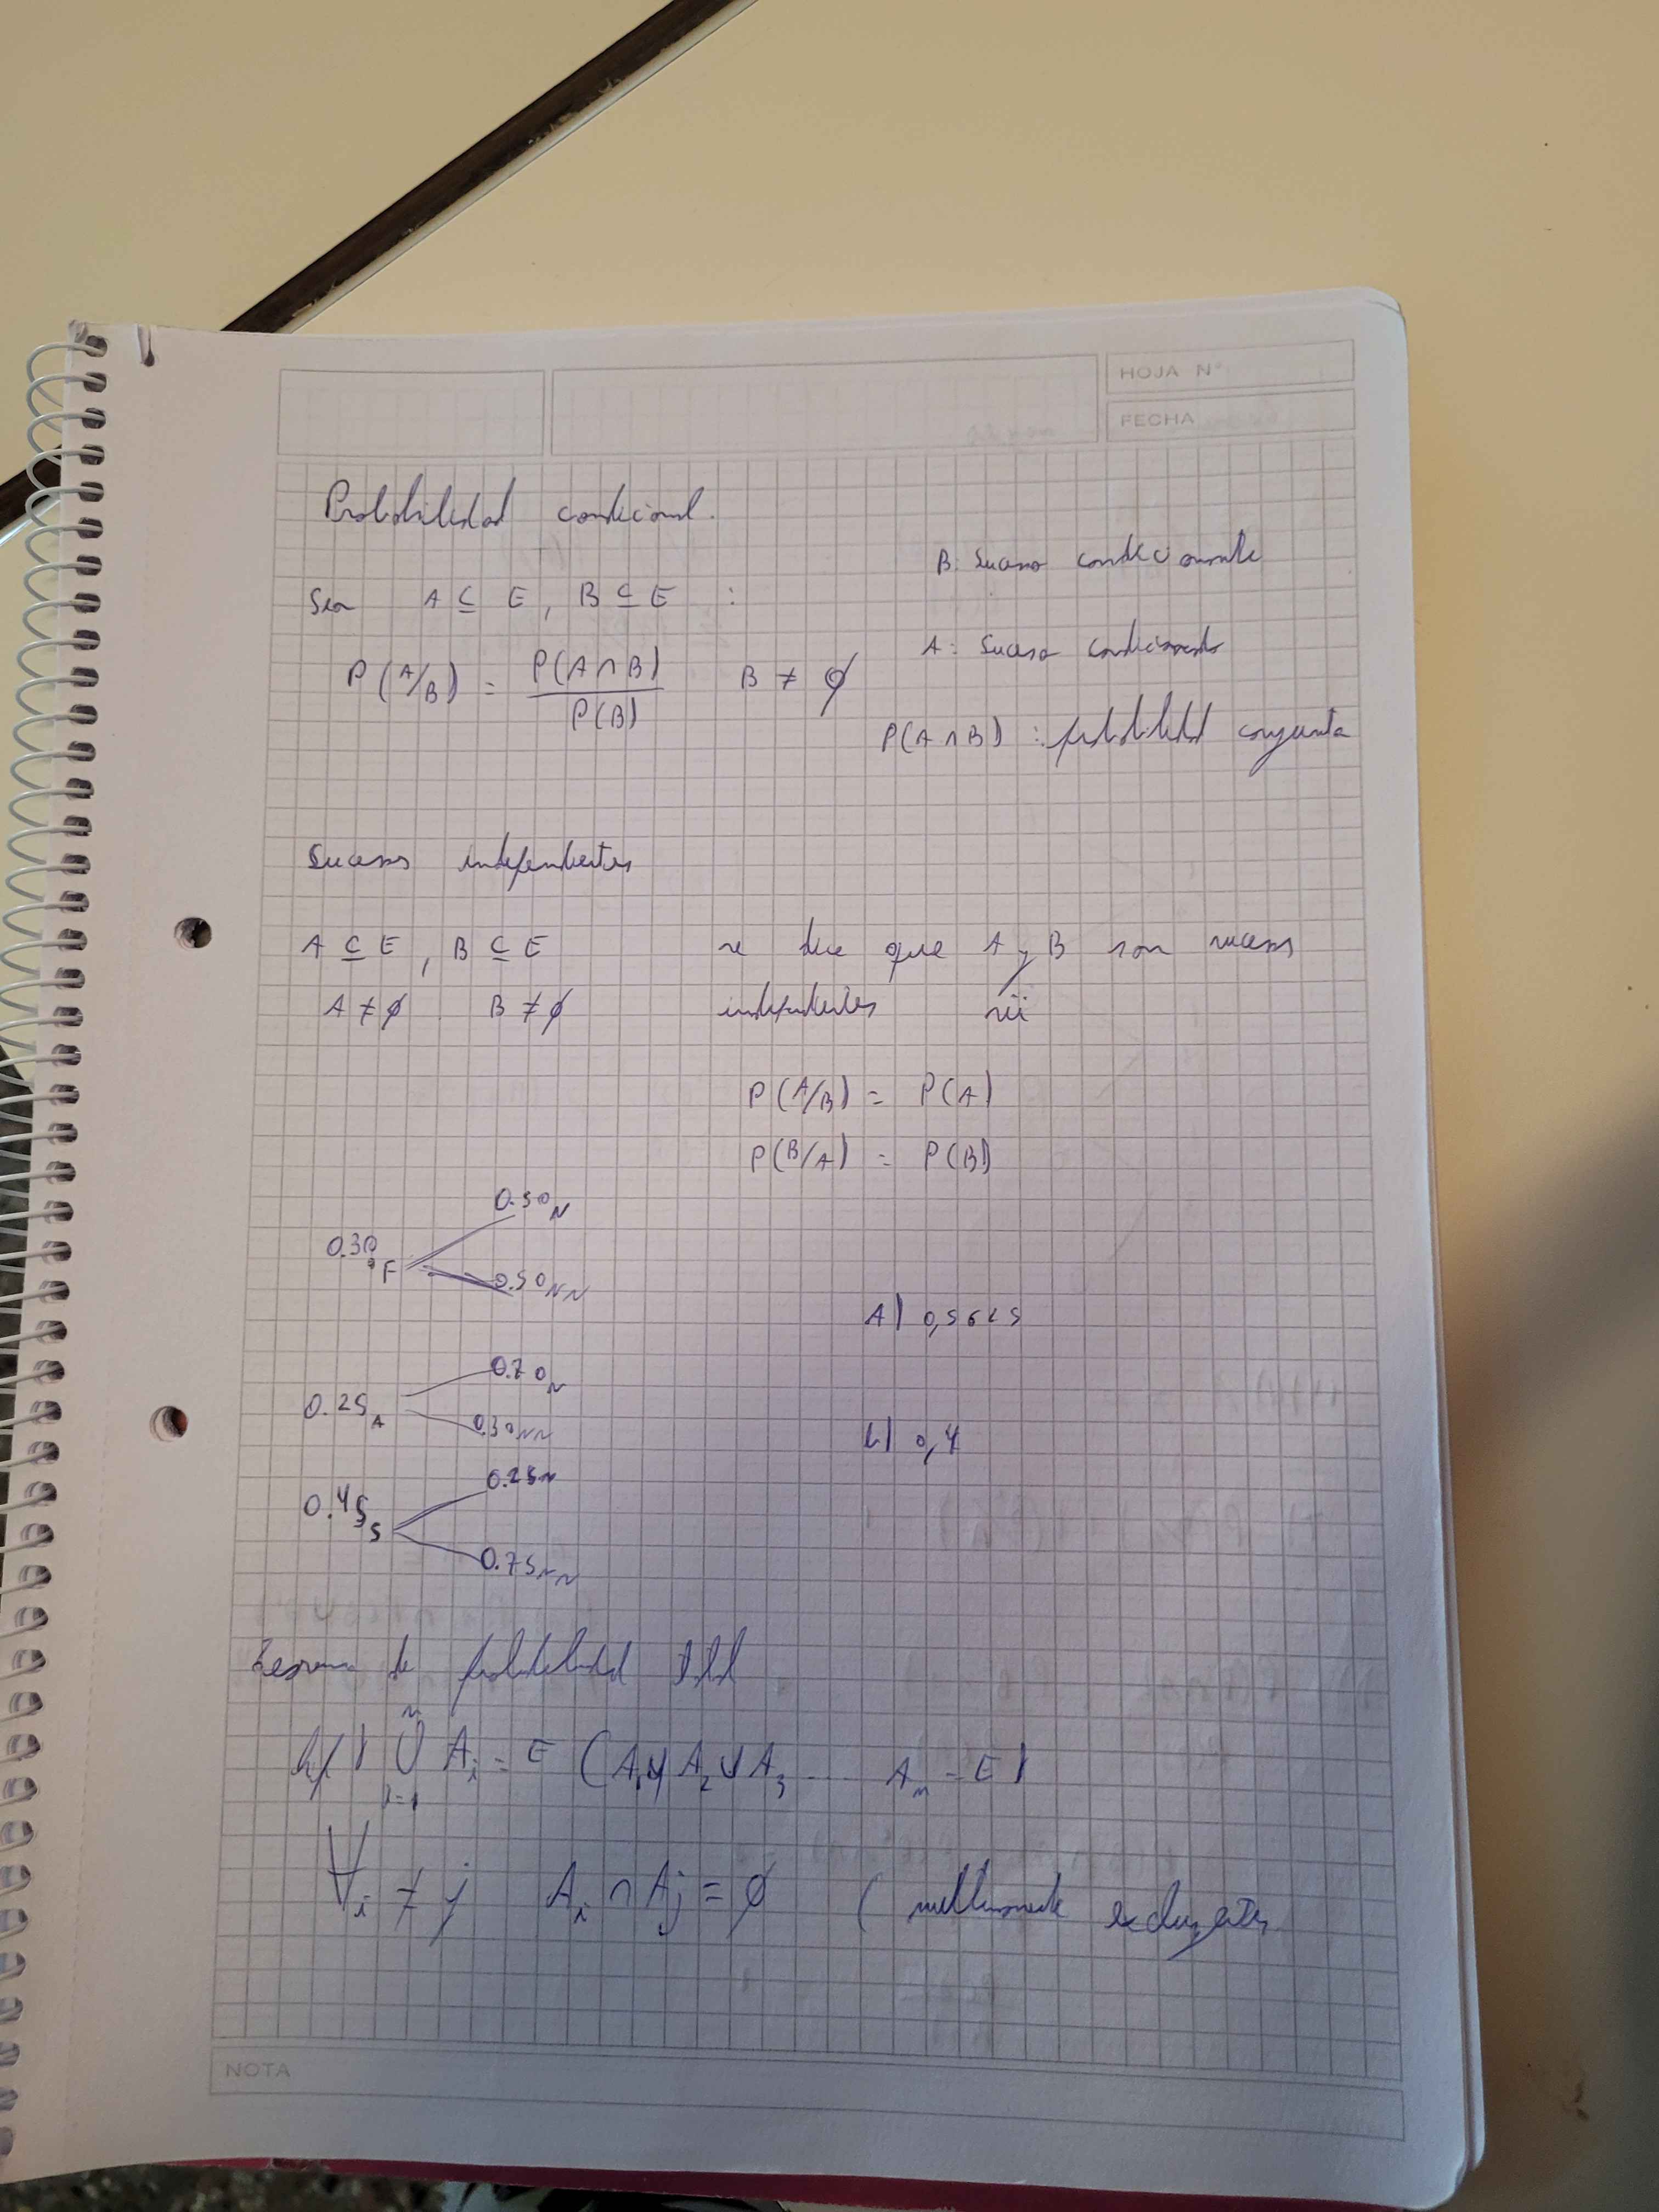 HOJA N°
FECHA
Probabilidad condicional.
B: Suceso condicionante
Sea A ⊆ E, B ⊆ E :
A: Suceso condicionado
P(A/B) = P(A∩B)/P(B) B ≠ ∅
P(A∩B) : probabilidad conjunta
Sucesos independientes
A ⊆ E, B ⊆ E se dice que A y B son sucesos
A ≠ ∅ B ≠ ∅ independientes sii
P(A/B) = P(A)
P(B/A) = P(B)
0.50 N
0.30 F
0.50 NN
A) 0,5625
0.70 N
0.25 A
0.30 NN
b) 0,4
0.25 N
0.45 S
0.75 NN
Teorema de probabilidad total
hp) ⋃ i=1 n Ai = E (A1 ∪ A2 ∪ A3 ... An = E)
∀i ≠ j Ai ∩ Aj = ∅ (mutuamente excluyentes
NOTA